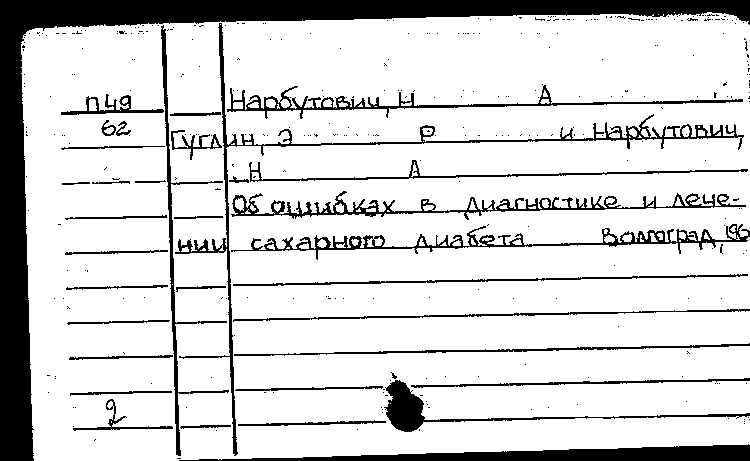 П49 Нарбутович, Н А
62 Гуглин, Э Р и Нарбутович,
Н А
Об ошибках в диагностике и лече-
нии сахарного диабета Волгоград, 196
2